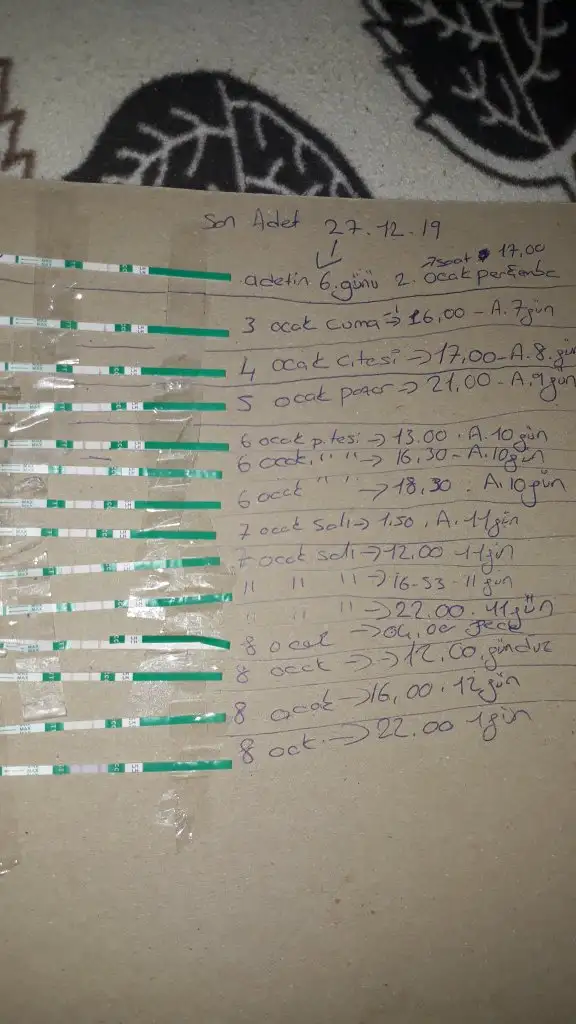 Son Adet 27.12.19
→saat 17.00
adetin 6.günü 2. Ocak perşembe
3 ocak cuma → 16,00 - A.7gün
4 ocak c.tesi → 17,00 - A.8.gün
5 ocak pazar → 21,00 - A.9gün
6 ocak p.tesi → 13.00 . A.10gün
6 ocak " " → 16,30 - A.10gün
6 ocak " " → 18,30 . A.10gün
7 ocak salı → 1.50 . A.11gün
7 ocak salı → 12.00 11gün
" " " → 16-53 - 11 gün
" " " → 22.00 . 11gün
8 ocak → 04,00 gece
8 ocak → 12,00 gündüz
8 ocak → 16,00 . 12gün
8 ock → 22.00 1gün